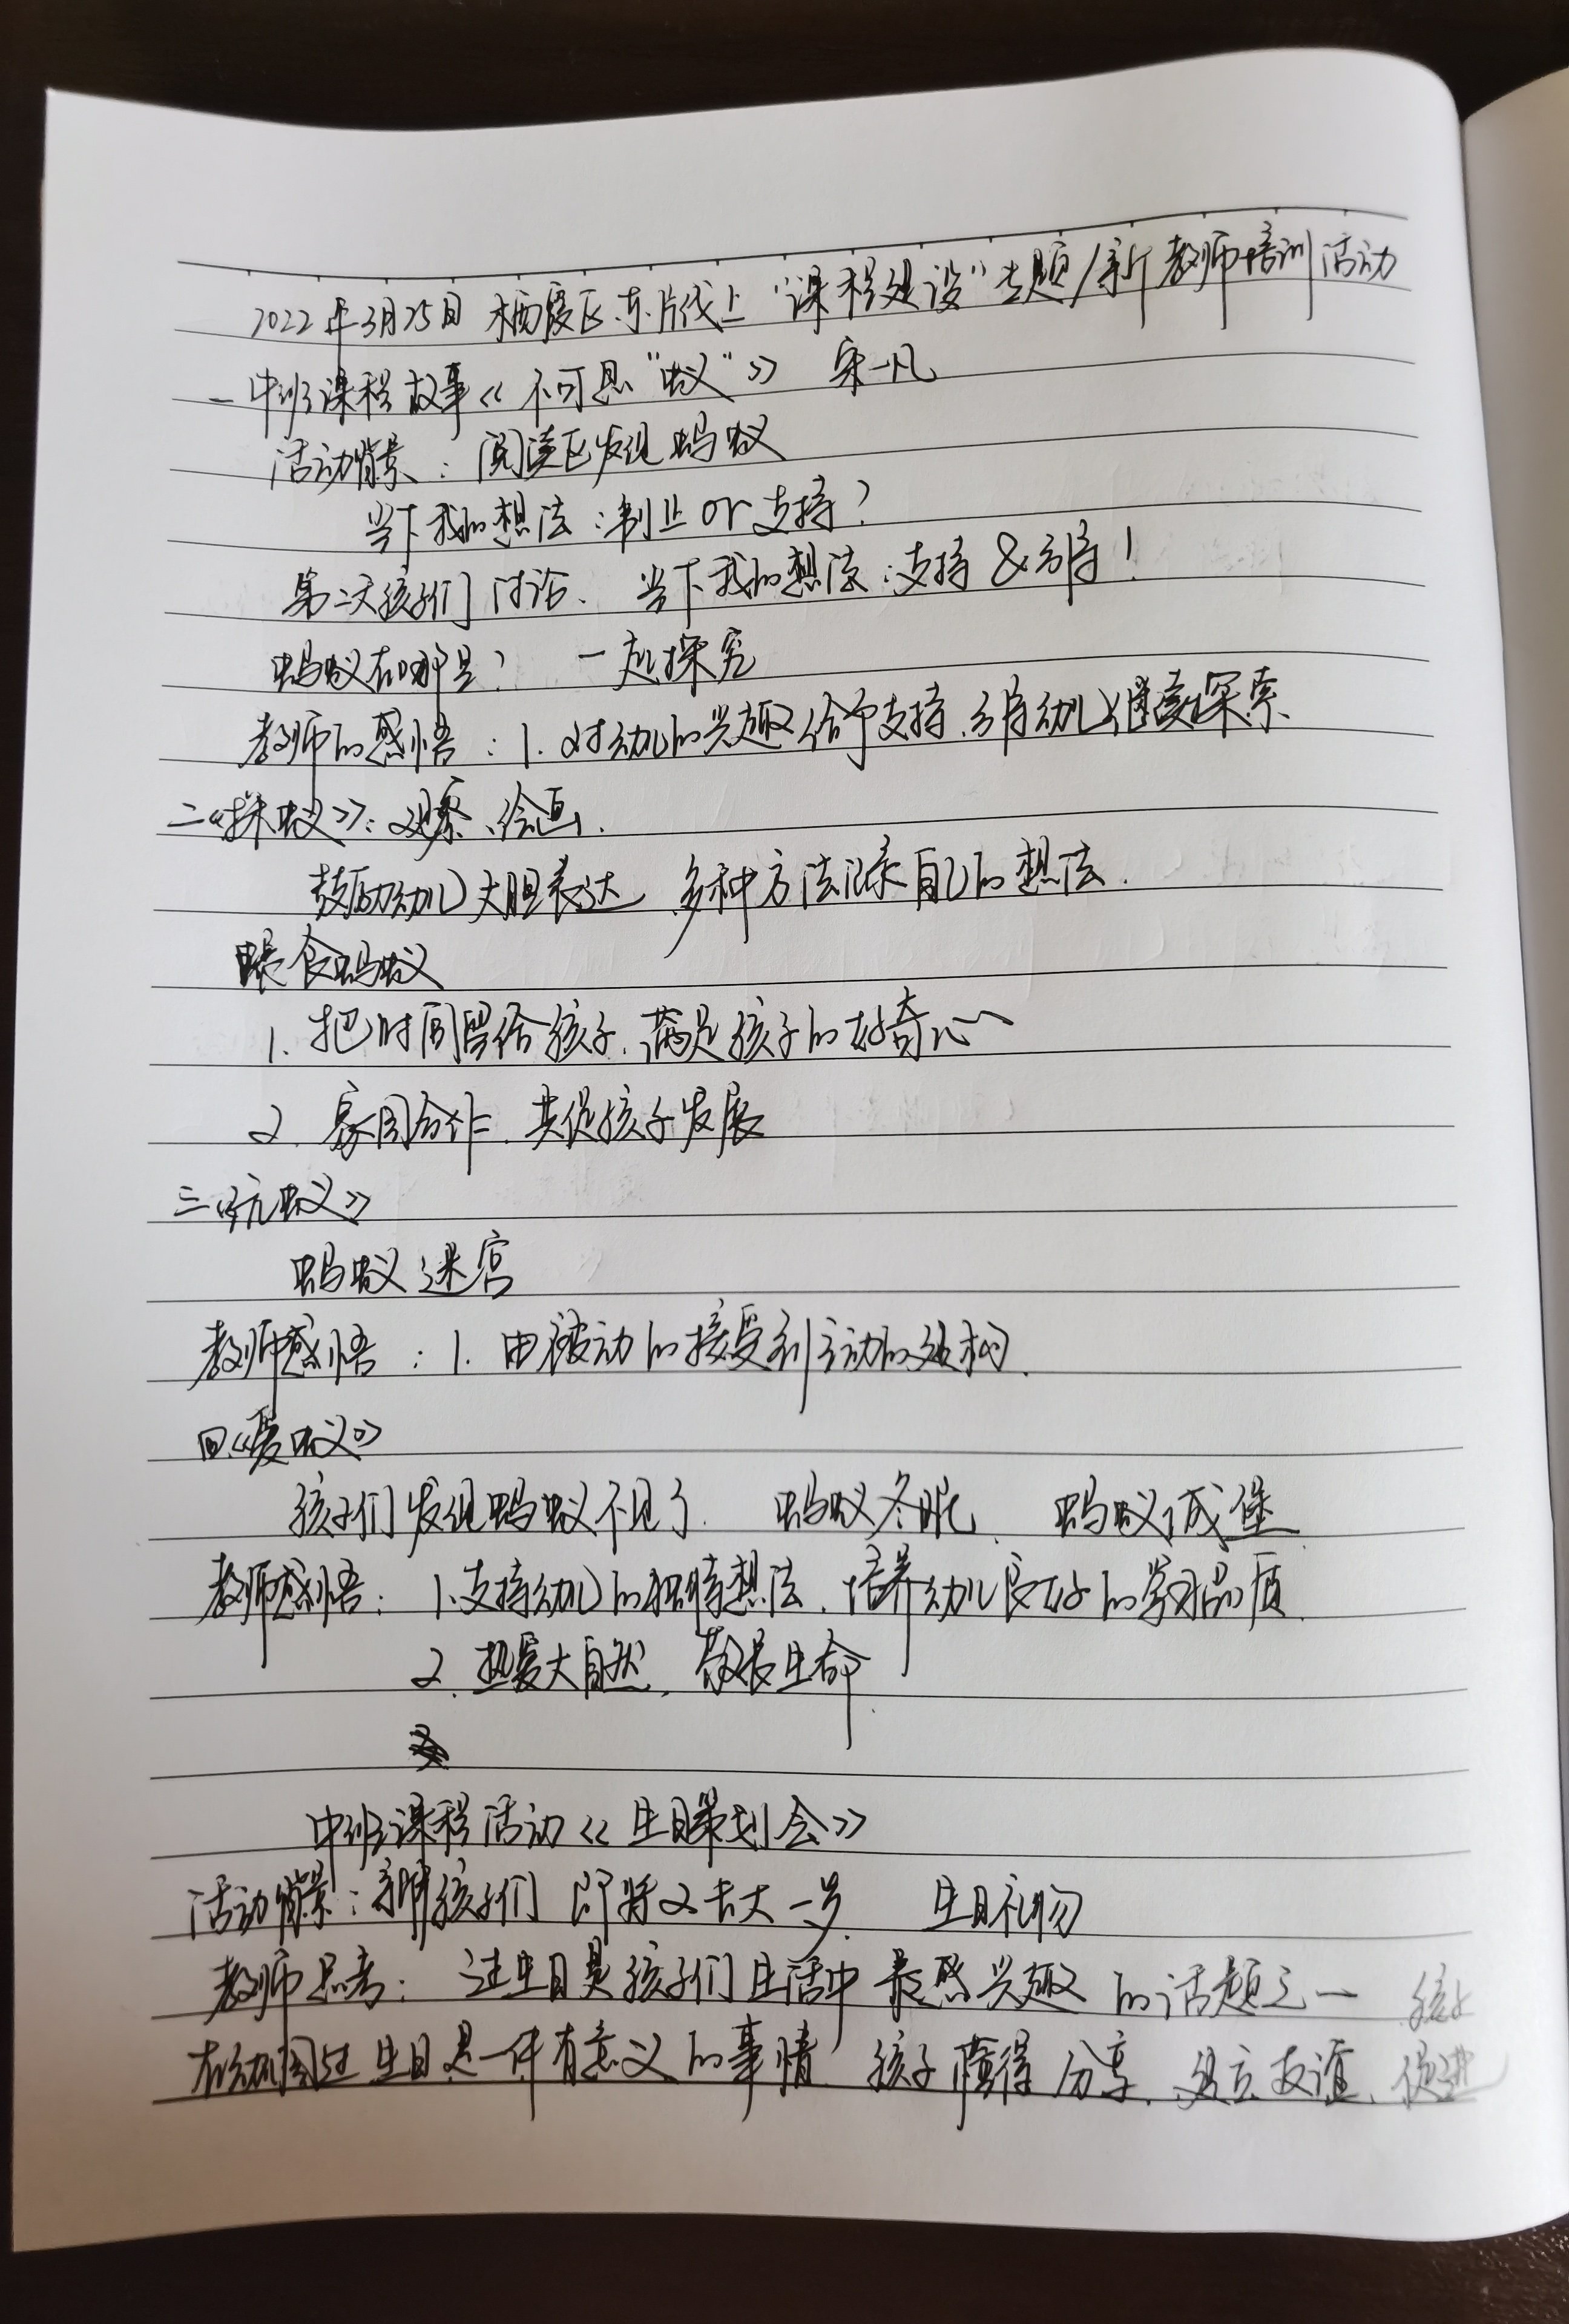 2022年3月25日 栖霞区东片线上“课程建设”专题/新教师培训活动
一 中班课程故事《不可思“蚁”》 宋一凡
活动背景：阅读区发现蚂蚁
当下我的想法：制止or支持？
第二天孩子们讨论、当下我的想法：支持&引导！
蚂蚁在哪里？ 一起探究
教师的感悟：1. 对幼儿的兴趣给予支持、引导幼儿继续探索
二《探蚁》：观察、绘画.
鼓励幼儿大胆表达、多种方法记录自己的想法.
喂食蚂蚁
1. 把时间留给孩子、满足孩子的好奇心
2. 家园合作、共促孩子发展
三《玩蚁》
蚂蚁迷宫
教师感悟：1. 由被动的接受到主动的建构.
四《爱蚁》
孩子们发现蚂蚁不见了. 蚂蚁冬眠、 蚂蚁城堡
教师感悟：1. 支持幼儿的独特想法、培养幼儿良好的学习品质.
2. 热爱大自然、敬畏生命
中班课程活动《生日策划会》
活动背景：孩子们即将又长大一岁. 生日礼物
教师思考： 过生日是孩子们生活中最感兴趣的话题之一 孩子
在幼儿园过生日是一件有意义的事情 孩子懂得分享、建立友谊、促进